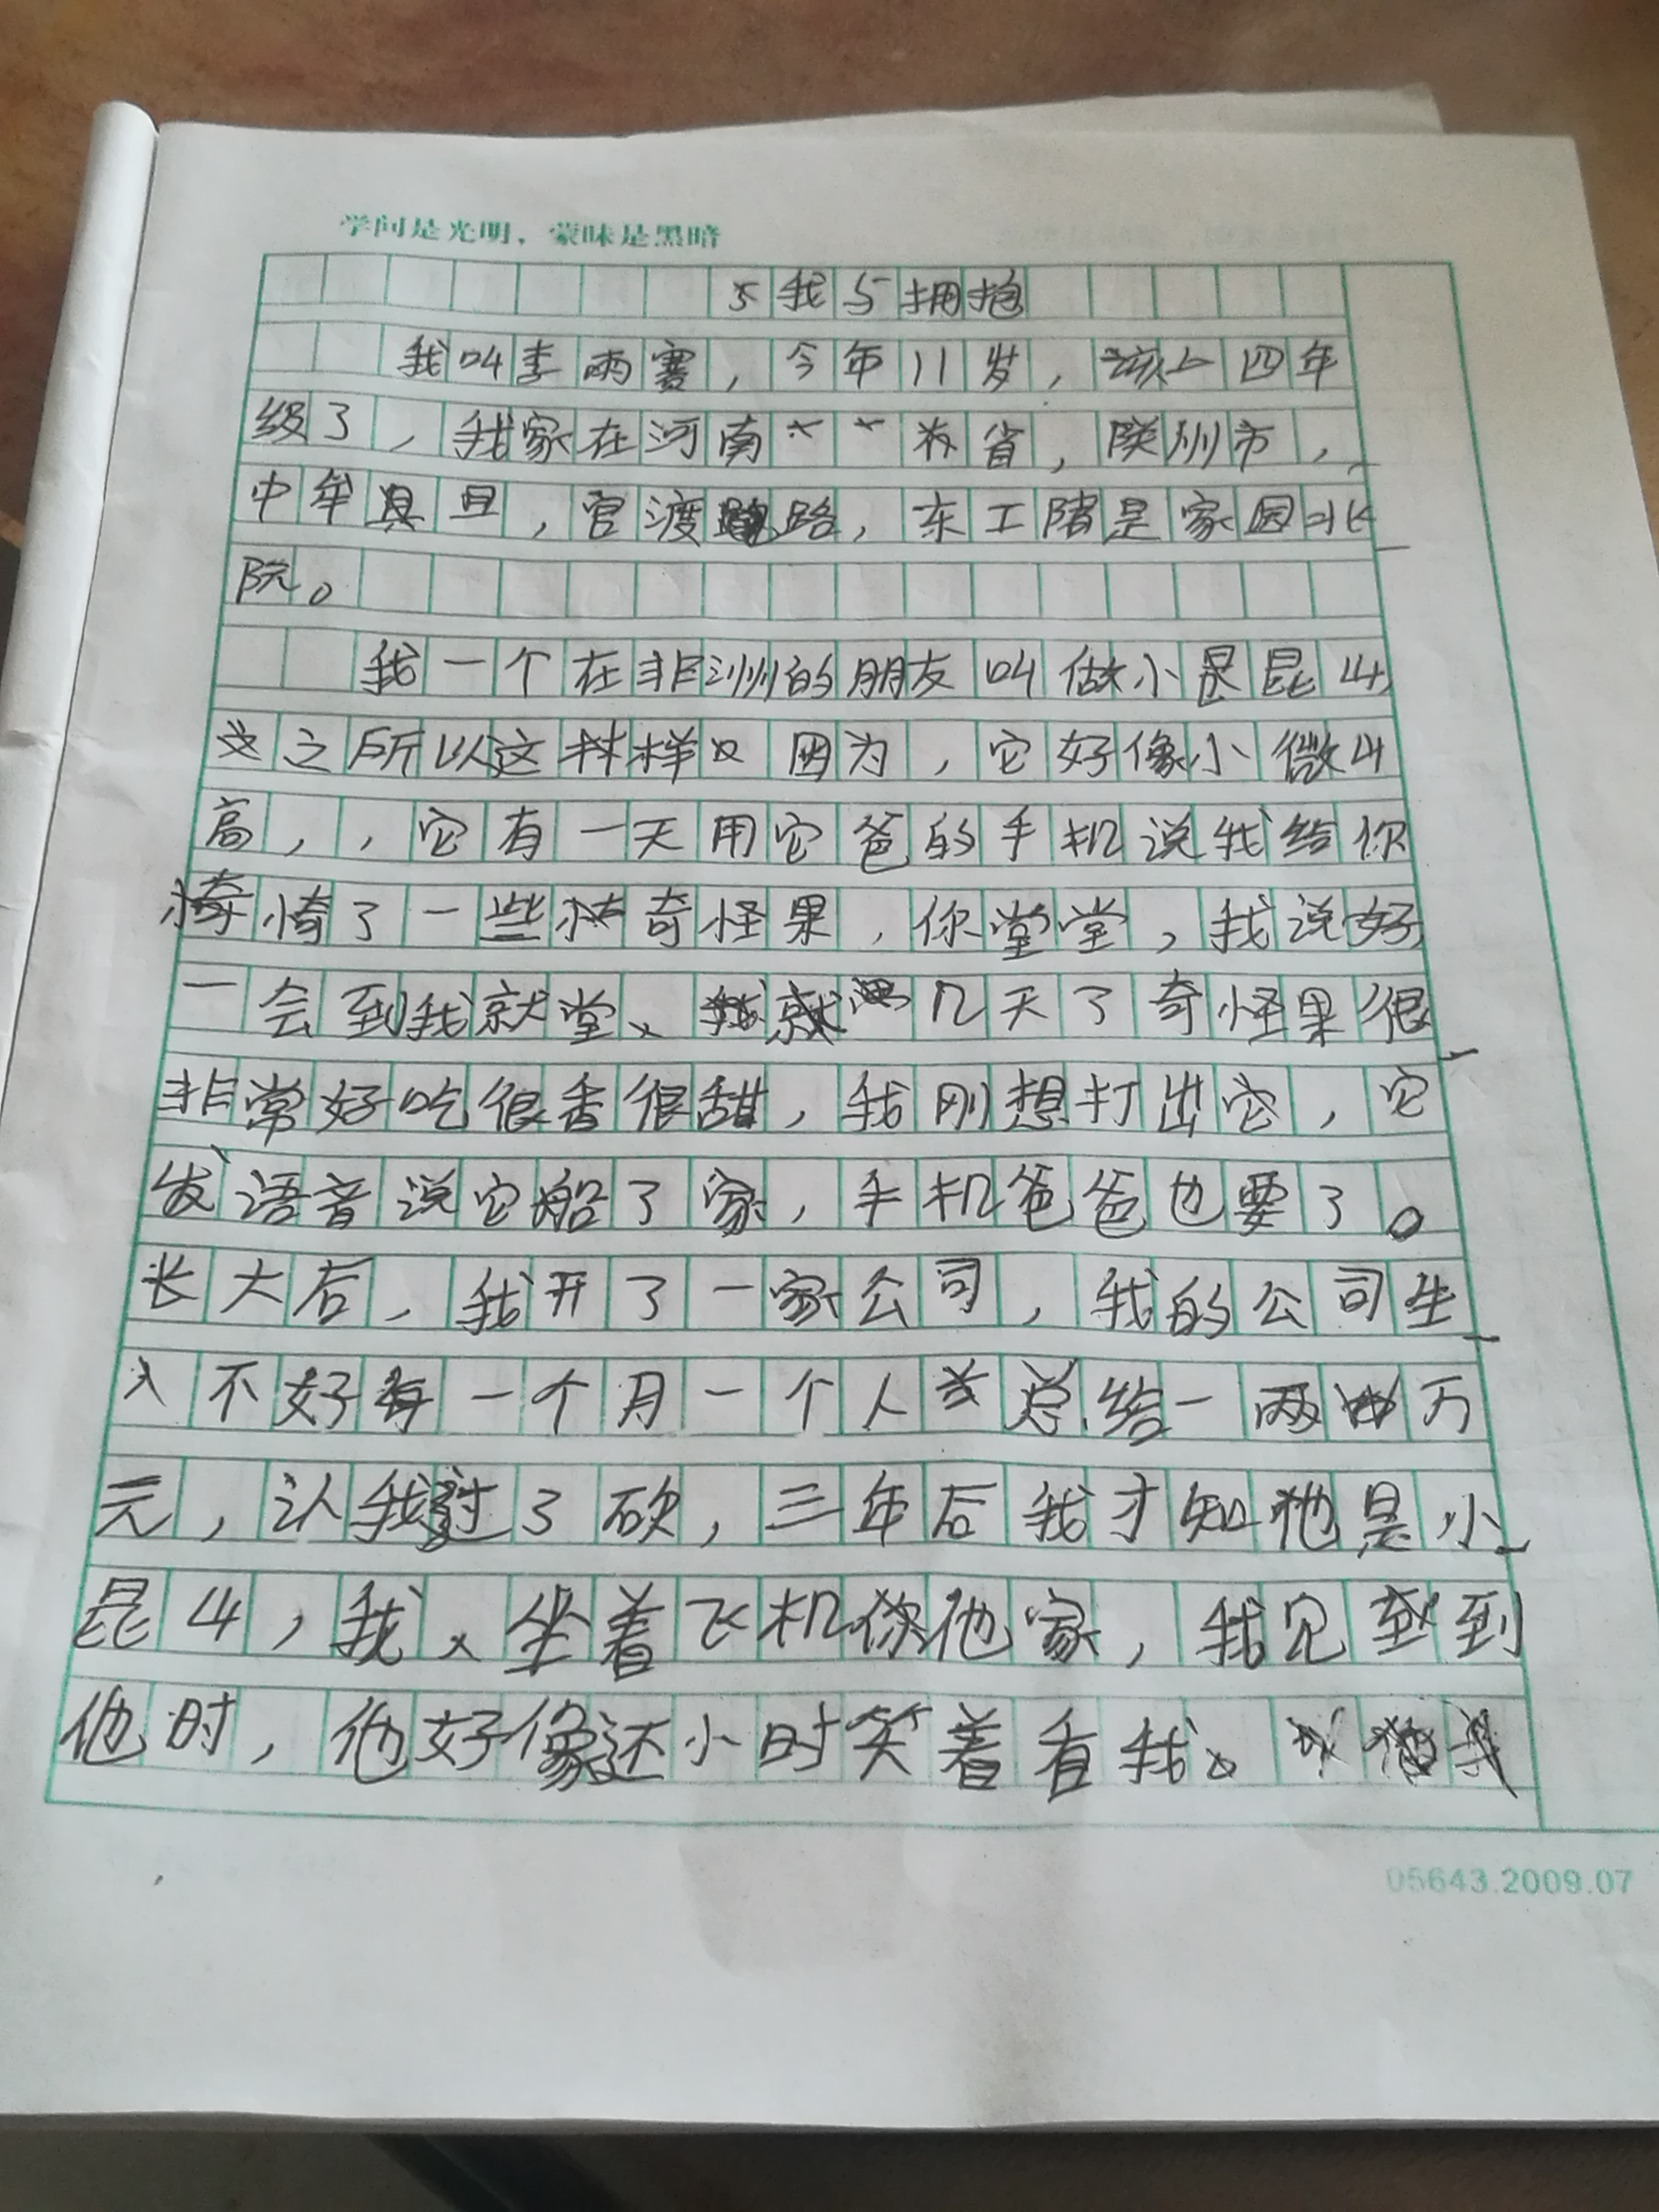 学问是光明，蒙昧是黑暗
我与拥抱
我叫李雨赛，今年11岁，该上四年
级了，我家在河南省，陕州市，
中牟具旦，官渡路，东工陼是家园北
院。
我一个在非洲的朋友叫做小昆山
之所以这样因为，它好像小微山
高，，它有一天用它爸的手机说我给你
了一些奇怪果，你堂堂，我说好
一会到我就堂、几天了奇怪果很
非常好吃很香很甜，我刚想打出它，它
发语音说它船了家，手机爸爸也要了。
长大后，我开了一家公司，我的公司生
不好每一个月一个人总给一两万
元，认我过了砍，三年后我才知他是小
昆山，我坐着飞机你他家，我见到
他时，他好像还小时笑着看我。
05643.2009.07